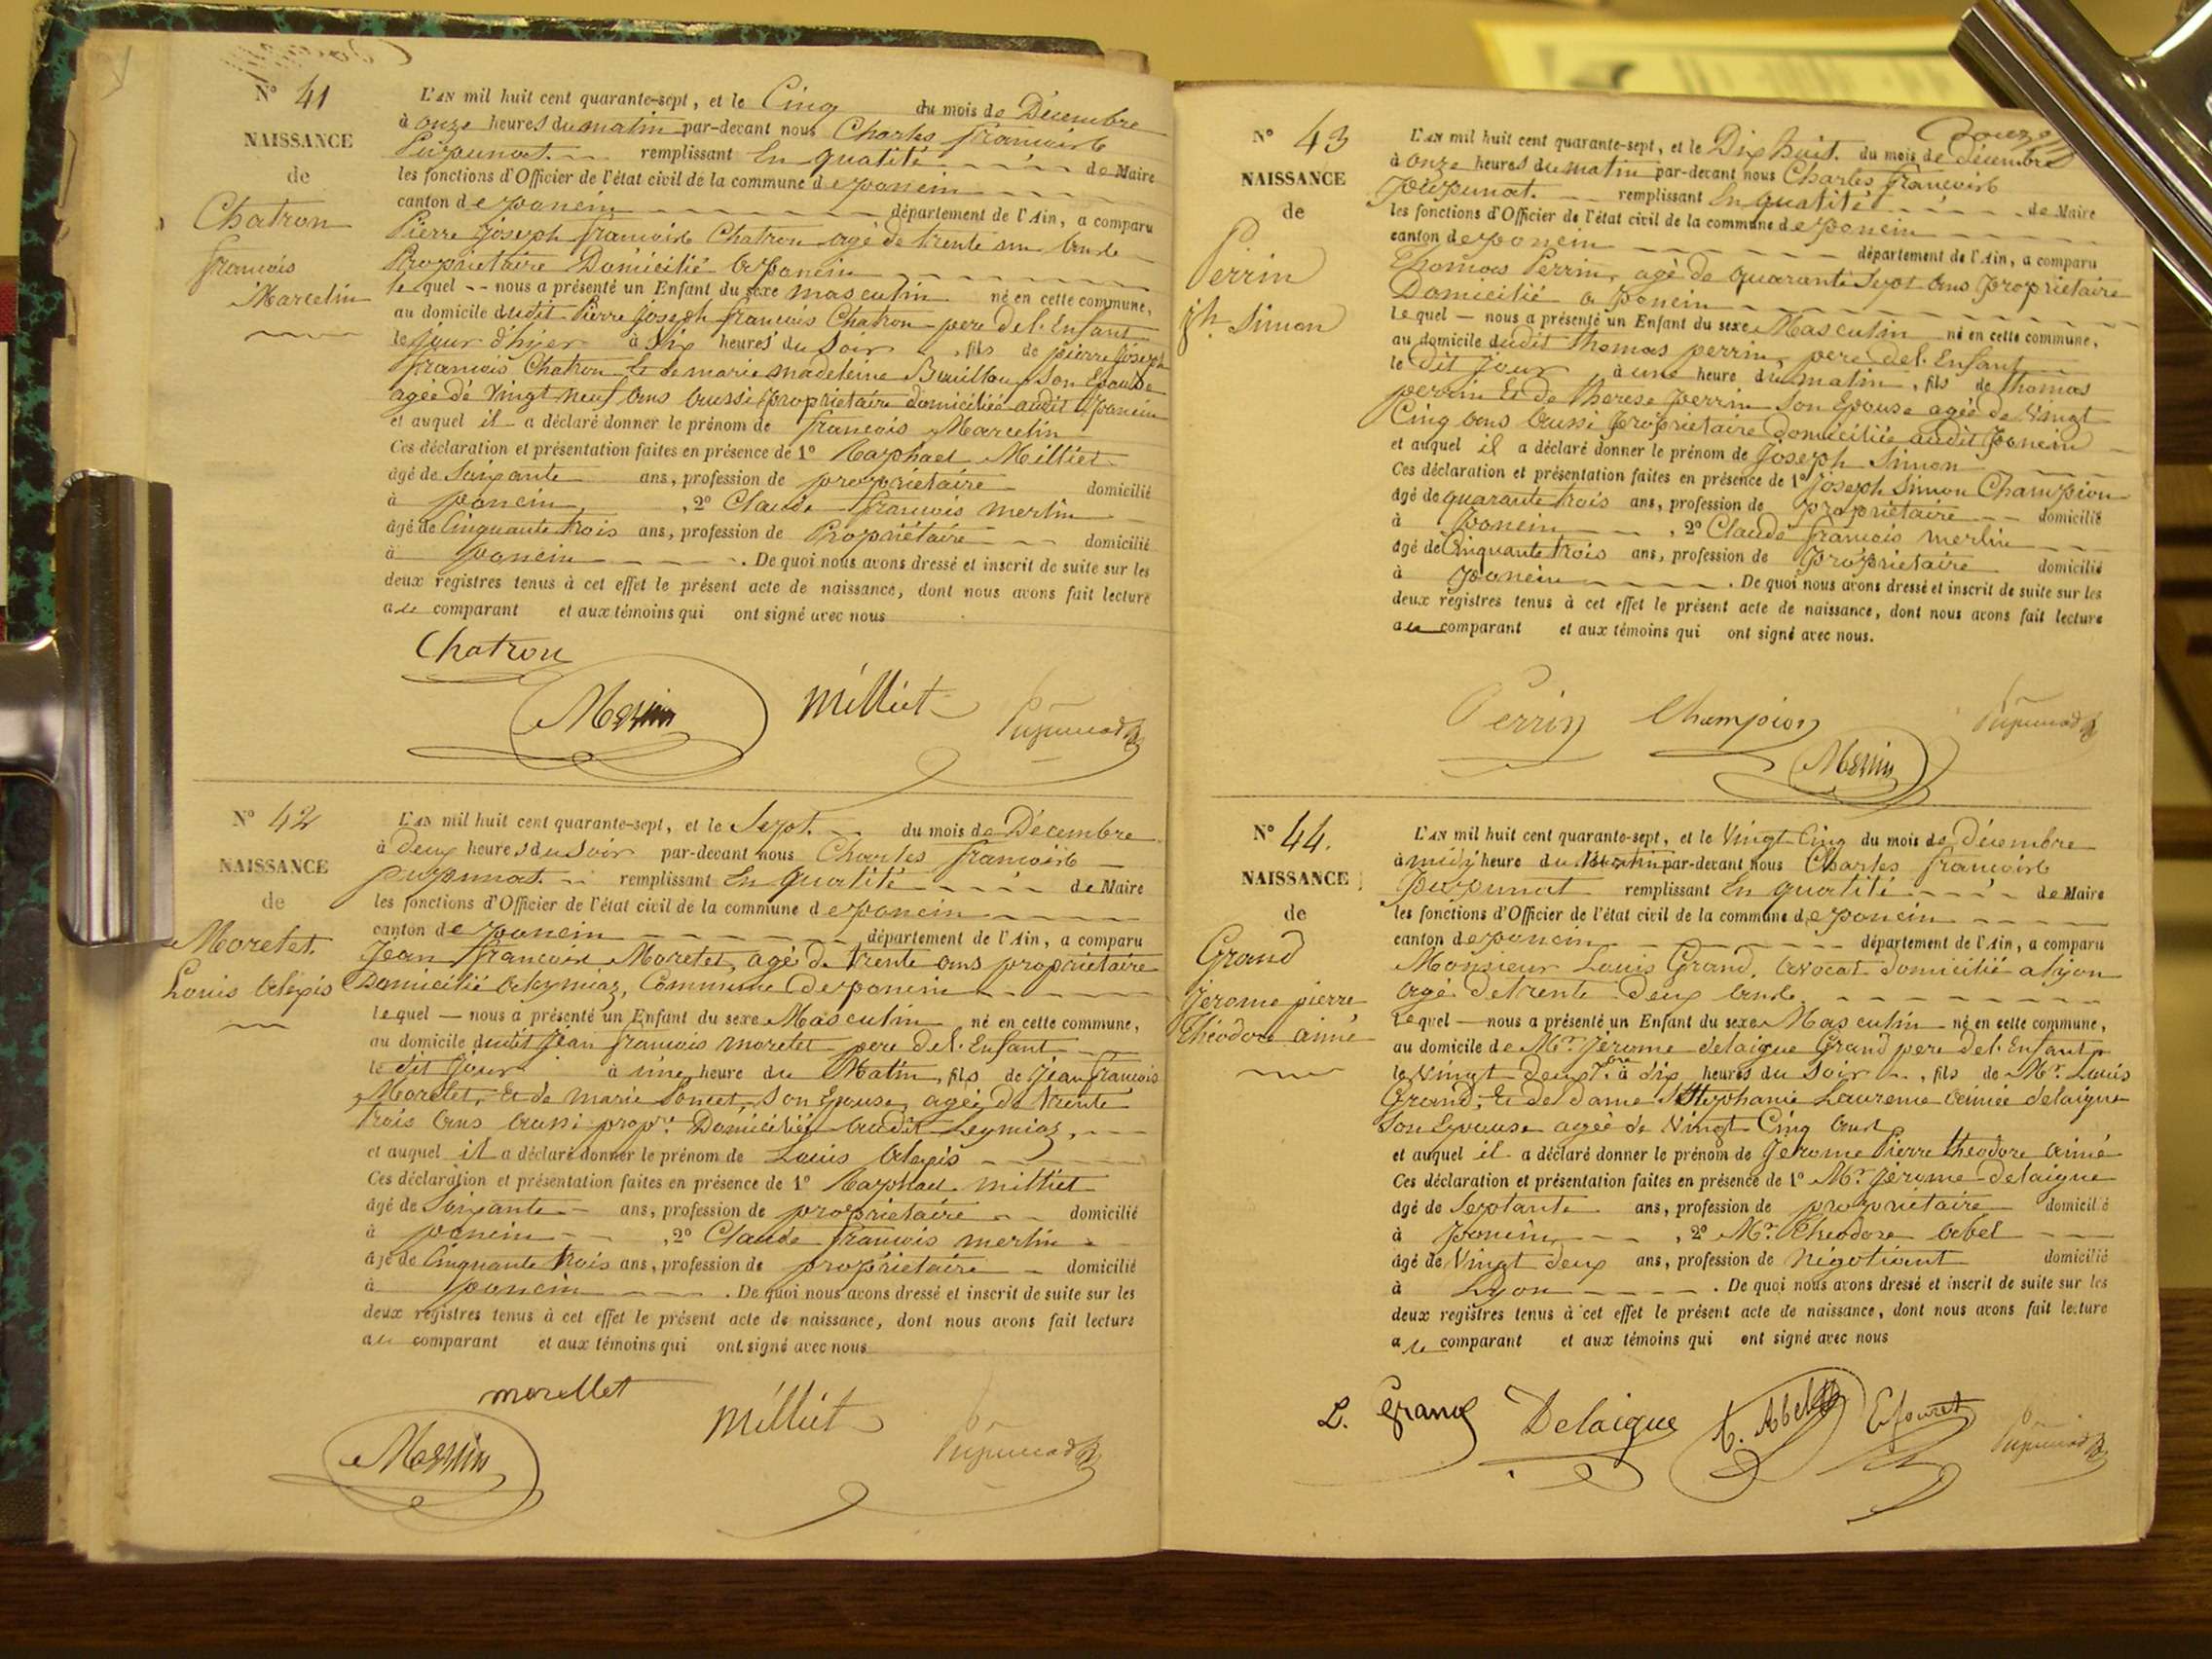 N° 41
NAISSANCE
de
Chatron
françois
Marcelin
L'AN mil huit cent quarante-sept, et le Cinq du mois de Décembre
à onze heures du matin par-devant nous Charles françois
remplissant En qualité de Maire
les fonctions d'Officier de l'état civil de la commune de poncin
canton de poncin département de l'Ain, a comparu
Pierre Joseph françois Chatron agé de trente un ans
Propriétaire Domicilié a poncin
le quel nous a présenté un Enfant du sexe masculin né en cette commune,
au domicile dudit Pierre Joseph françois Chatron pere de l'Enfant
le jour d'hyer à Six heures du Soir, fils de pierre Joseph
françois Chatron Et de marie madeleine son Epouse
agée de vingt neuf ans aussi propriétaire domiciliée audit poncin
et auquel il a déclaré donner le prénom de françois Marcelin
Ces déclaration et présentation faites en présence de 1° Raphael Milliet
âgé de Soixante ans, profession de propriétaire domicilié
à poncin, 2° Claude françois merlin
âgé de Cinquante trois ans, profession de Propriétaire domicilié
à poncin. De quoi nous avons dressé et inscrit de suite sur les
deux registres tenus à cet effet le présent acte de naissance, dont nous avons fait lecture
au comparant et aux témoins qui ont signé avec nous
Chatron
Merlin Milliet
N° 42
NAISSANCE
de
Moretet
Louis alexis
L'AN mil huit cent quarante-sept, et le Sept. du mois de Décembre
à deux heures du Soir par-devant nous Charles françois
remplissant En qualité de Maire
les fonctions d'Officier de l'état civil de la commune de poncin
canton de poncin département de l'Ain, a comparu
Jean françois Moretet, agé de trente ans propriétaire
Domicilié a Leymiaz, Commune de poncin
lequel nous a présenté un Enfant du sexe Masculin né en cette commune,
au domicile dudit Jean françois moretet pere de l'Enfant
le dit Jour à une heure du Matin, fils de Jean françois
Moretet, Et de marie son Epouse, agée de trente
trois ans aussi propre Domiciliée audit Leymiaz,
et auquel il a déclaré donner le prénom de Louis alexis
Ces déclaration et présentation faites en présence de 1° Raphael milliet
âgé de Soixante ans, profession de propriétaire domicilié
à poncin, 2° Claude françois merlin
âgé de Cinquante trois ans, profession de propriétaire domicilié
à poncin. De quoi nous avons dressé et inscrit de suite sur les
deux registres tenus à cet effet le présent acte de naissance, dont nous avons fait lecture
au comparant et aux témoins qui ont signé avec nous
morellet
Merlin Milliet
N° 43
NAISSANCE
de
Perrin
jh. Simon
L'AN mil huit cent quarante-sept, et le Dix huit. du mois de décembre
à onze heures du matin par-devant nous Charles françois
remplissant En qualité de Maire
les fonctions d'Officier de l'état civil de la commune de poncin
canton de poncin département de l'Ain, a comparu
Thomas Perrin, agé de quarante Sept ans propriétaire
Domicilié a poncin
lequel nous a présenté un Enfant du sexe Masculin né en cette commune,
au domicile dudit thomas perrin, pere de l'Enfant
le dit Jour à une heure du matin, fils de thomas
perrin Et de therese perrin son Epouse agée de vingt
Cinq ans aussi propriétaire domiciliée audit poncin
et auquel il a déclaré donner le prénom de Joseph Simon
Ces déclaration et présentation faites en présence de 1° Joseph Simon Champion
âgé de quarante trois ans, profession de propriétaire domicilié
à poncin, 2° Claude françois merlin
âgé de Cinquante trois ans, profession de propriétaire domicilié
à poncin. De quoi nous avons dressé et inscrit de suite sur les
deux registres tenus à cet effet le présent acte de naissance, dont nous avons fait lecture
au comparant et aux témoins qui ont signé avec nous.
Perrin Champion
Merlin
N° 44.
NAISSANCE
de
Grand
Jerome pierre
Théodore aimé
L'AN mil huit cent quarante-sept, et le Vingt Cinq du mois de décembre
à midi heure du par-devant nous Charles françois
remplissant En qualité de Maire
les fonctions d'Officier de l'état civil de la commune de poncin
canton de poncin département de l'Ain, a comparu
Monsieur Louis Grand, avocat domicilié a lyon
agé de trente deux ans
lequel nous a présenté un Enfant du sexe Masculin né en cette commune,
au domicile de Mr. Jérome delaigue Grand pere de l'Enfant
le Vingt deux à dix heures du Soir, fils de Mr. Louis
Grand, Et de dame Stephanie Laurence aimée delaigue
son Epouse agée de Vingt Cinq ans
et auquel il a déclaré donner le prénom de Jerome Pierre theodore aimé
Ces déclaration et présentation faites en présence de 1° Mr. Jérome delaigue
âgé de Septante ans, profession de propriétaire domicilié
à poncin, 2° Mr. theodore abel
âgé de Vingt deux ans, profession de négotiant domicilié
à Lyon. De quoi nous avons dressé et inscrit de suite sur les
deux registres tenus à cet effet le présent acte de naissance, dont nous avons fait lecture
au comparant et aux témoins qui ont signé avec nous
L. Grand Delaigue t. Abel